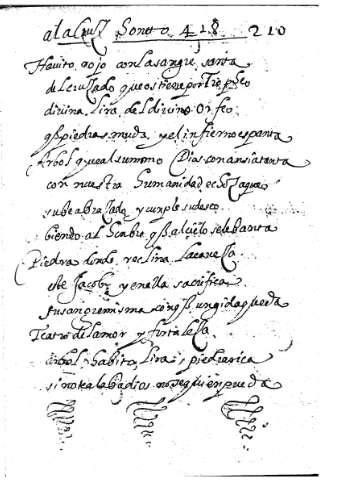 a la Cruz Soneto 418 210
Havito rojo con la sangre santa
del cruzado que os tiene por
divina Lira del divino Orfeo
q piedras muda y el infierno espanta
Arbol que al summo Dios con ansia tanta
con nuestra humanidad
sube abrazado y cumple su deseo
siendo al q al cielo se lebanta
Piedra donde reclina la caveça
este Jacob y en ella sacrifica
su sangre misma con q ungida queda
Teatro del amor y fortaleça
arbol, habito, Lira, piedra rica
si no te alaba dios no se quien pueda